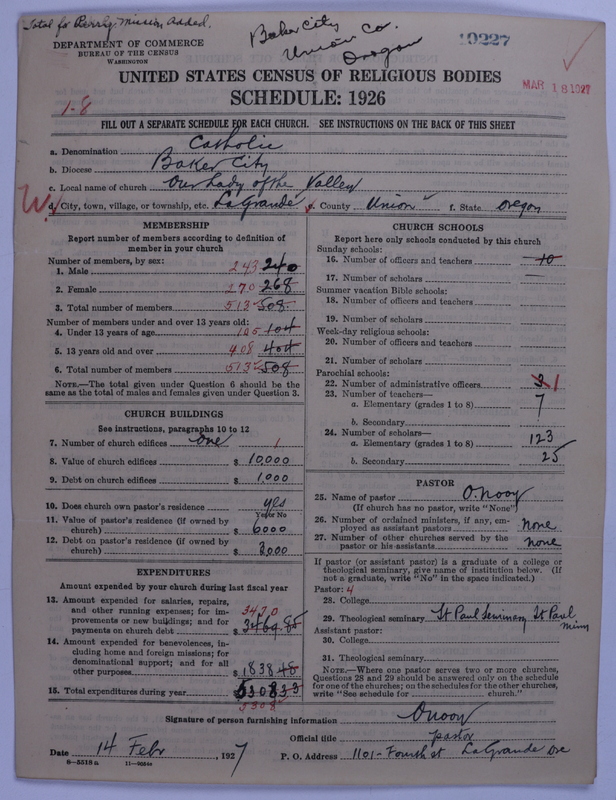 Total for Parrly Mission Added.
Baker City
Union Co.
Oregon
10227
DEPARTMENT OF COMMERCE
BUREAU OF THE CENSUS
WASHINGTON
UNITED STATES CENSUS OF RELIGIOUS BODIES
MAR 18 1927
SCHEDULE: 1926
1-8
FILL OUT A SEPARATE SCHEDULE FOR EACH CHURCH. SEE INSTRUCTIONS ON THE BACK OF THIS SHEET
a. Denomination Catholic
b. Diocese Baker City
c. Local name of church Our Lady of the Valley
W. d. City, town, village, or township, etc. La Grande e. County Union f. State Oregon
MEMBERSHIP
Report number of members according to definition of
member in your church
Number of members, by sex:
1. Male 243 240
2. Female 270 268
3. Total number of members 513 508
Number of members under and over 13 years old:
4. Under 13 years of age 105 104
5. 13 years old and over 408 404
6. Total number of members 513 508
NOTE.—The total given under Question 6 should be the
same as the total of males and females given under Question 3.
CHURCH BUILDINGS
See instructions, paragraphs 10 to 12
7. Number of church edifices one 1
8. Value of church edifices $ 10,000
9. Debt on church edifices $ 1,000
10. Does church own pastor's residence yes
Yes or No
11. Value of pastor's residence (if owned by
church) $ 6000
12. Debt on pastor's residence (if owned by
church) $ 2,000
EXPENDITURES
Amount expended by your church during last fiscal year
13. Amount expended for salaries, repairs,
and other running expenses; for im-
provements or new buildings; and for
payments on church debt 3470 $ 3469.85
14. Amount expended for benevolences, in-
cluding home and foreign missions; for
denominational support; and for all
other purposes $ 1838 48
15. Total expenditures during year $ 5308 33
5308
CHURCH SCHOOLS
Report here only schools conducted by this church
Sunday schools:
16. Number of officers and teachers 10
17. Number of scholars —
Summer vacation Bible schools:
18. Number of officers and teachers
19. Number of scholars
Week-day religious schools:
20. Number of officers and teachers
21. Number of scholars
Parochial schools:
22. Number of administrative officers 3 1
23. Number of teachers—
a. Elementary (grades 1 to 8) 7
b. Secondary
24. Number of scholars—
a. Elementary (grades 1 to 8) 123
b. Secondary 25
PASTOR
25. Name of pastor O. Nooy
(If church has no pastor, write "None")
26. Number of ordained ministers, if any, em-
ployed as assistant pastors None
27. Number of other churches served by the
pastor or his assistants None
If pastor (or assistant pastor) is a graduate of a college or
theological seminary, give name of institution below. (If
not a graduate, write "No" in the space indicated.)
Pastor: 4
28. College
29. Theological seminary St Paul Seminary St Paul
Minn
Assistant pastor:
30. College
31. Theological seminary
NOTE.—Where one pastor serves two or more churches,
Questions 28 and 29 should be answered only on the schedule
for one of the churches; on the schedules for the other churches,
write "See schedule for church."
Signature of person furnishing information O Nooy
Official title pastor
Date 14 Febr , 1927 P. O. Address 1101 - Fourth st La Grande Ore
8—5518a 11—9654